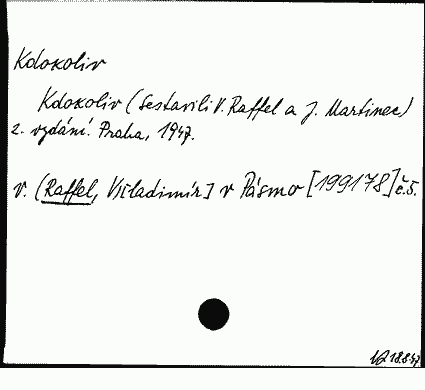 Kdokoliv
Kdokoliv (Sestavili V. Raffel a J. Martinec)
2. vydání. Praha, 1947.
v. (Raffel, V[ladimír] v Pásmo [199178] č.5.
18.8.47